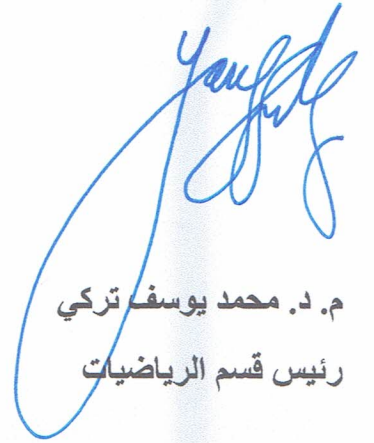 م. د. محمد يوسف تركي
رئيس قسم الرياضيات